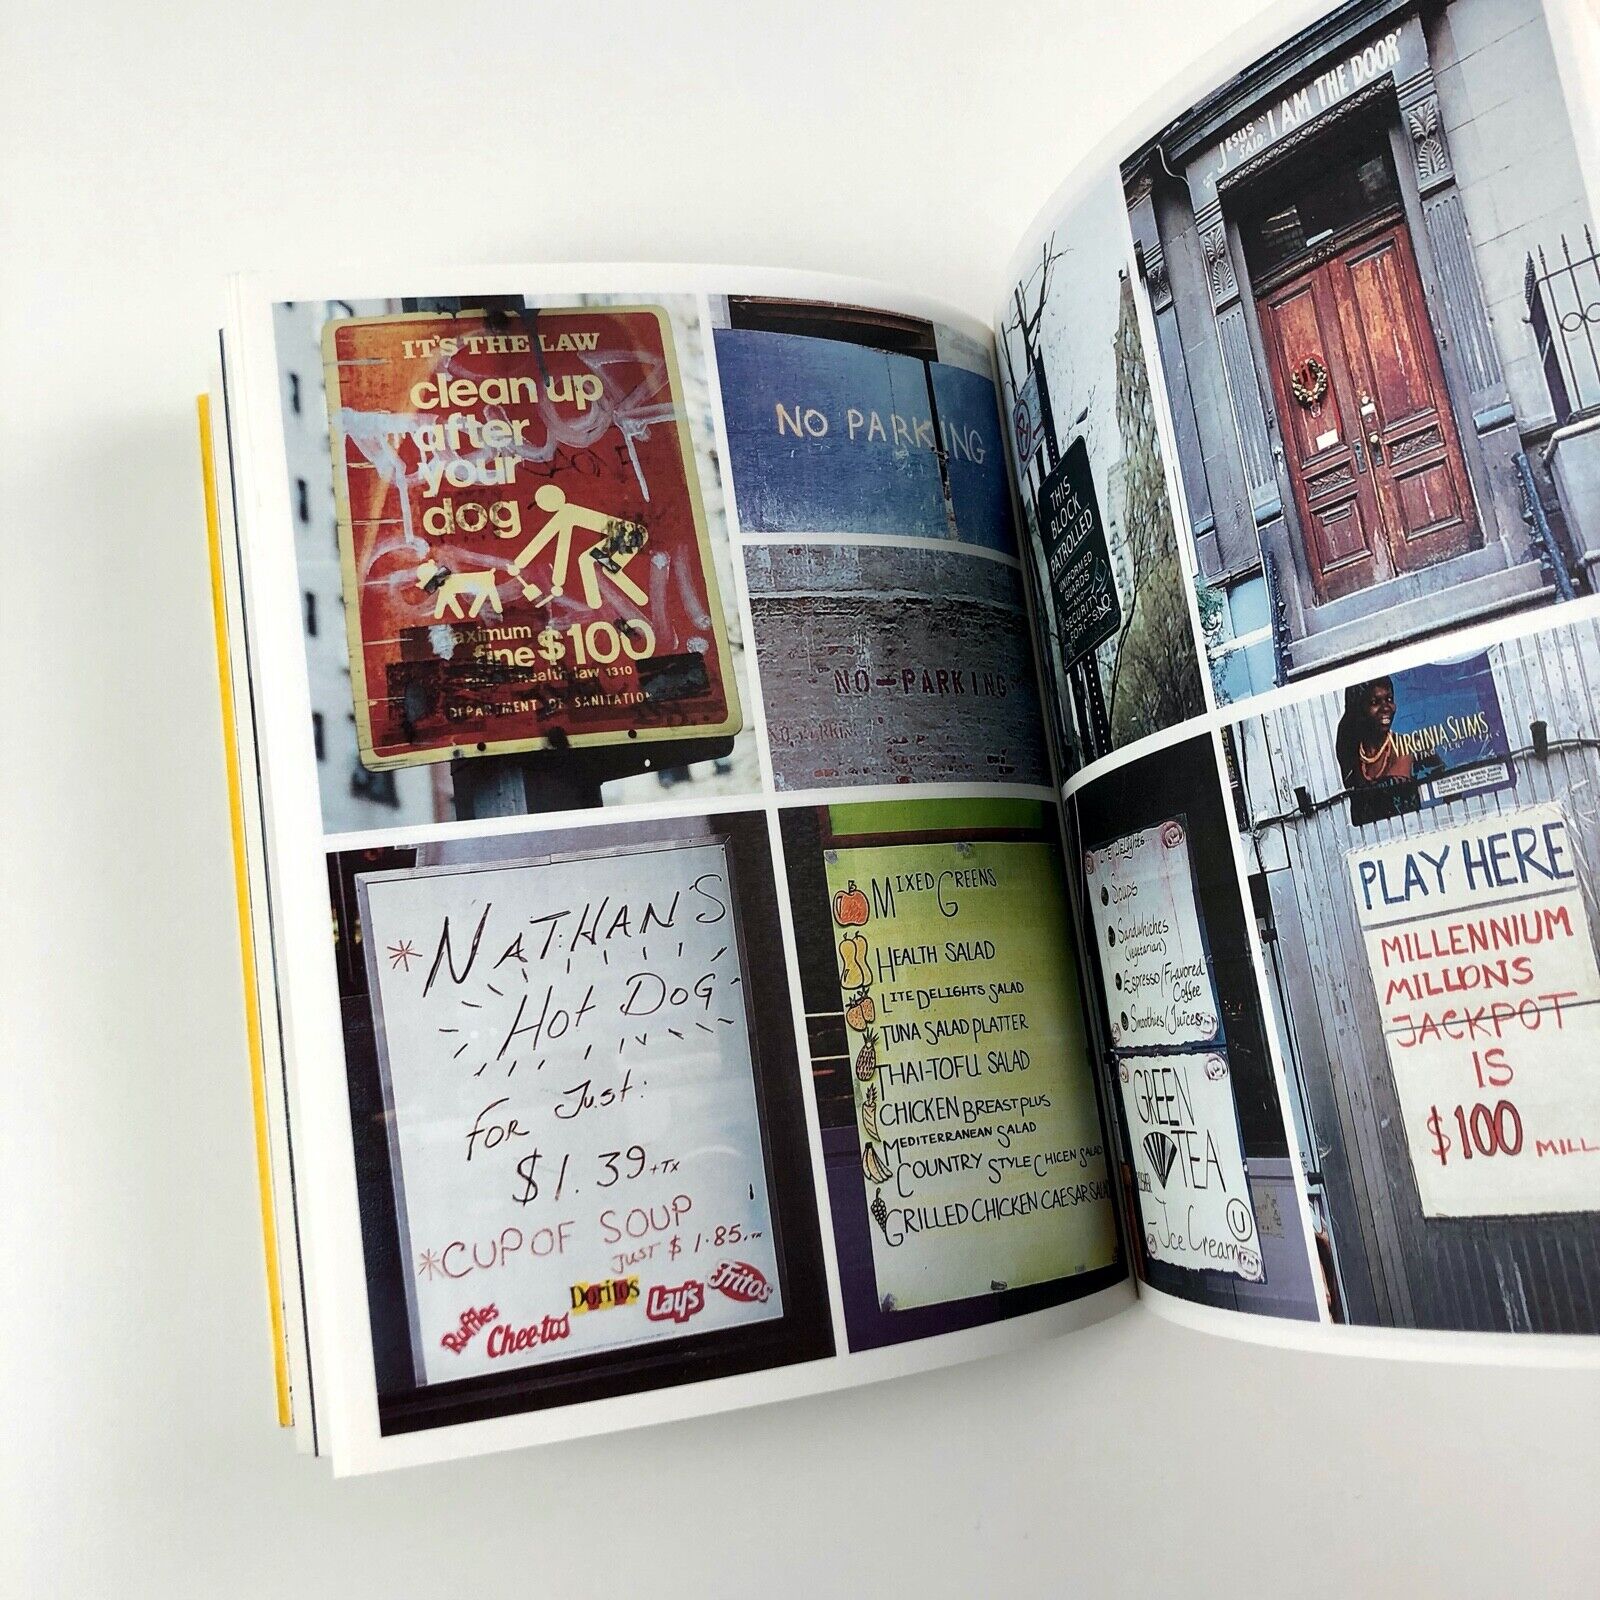 IT'S THE LAW
clean up
after
your
dog
maximum
fine $100
health law 1310
DEPARTMENT OF SANITATION
NO PARKING
NO-PARKING
NO
*NATHAN'S
HOt DOG
FOR Just:
$1.39+TX
*CUP OF SOUP
JUST $1.85.TX
Ruffles
Chee-tos
Doritos
Lay's
Fritos
MIXED GREENS
HEALTH SALAD
LITE DELIGHTS SALAD
TUNA SALAD PLATTER
THAI-TOFU SALAD
CHICKEN BREAST PLUS
MEDITERRANEAN SALAD
COUNTRY STYLE CHICEN SALAD
GRILLED CHICKEN CAESAR SALAD
THIS
BLOCK
PATROLLED
UNIFORMED
GUARDS
AND
SECURITY
FORCES
JESUS
SAID: "I AM THE DOOR"
LITE DELIGHTS
SOUPS
Sandwhiches
(vegetarian)
Espresso/Flavored
Coffee
Smoothies/Juices
GREEN
TEA
Ice Cream
U
VIRGINIA SLIMS
PLAY HERE
MILLENNIUM
MILLIONS
JACKPOT
IS
$100 MILL